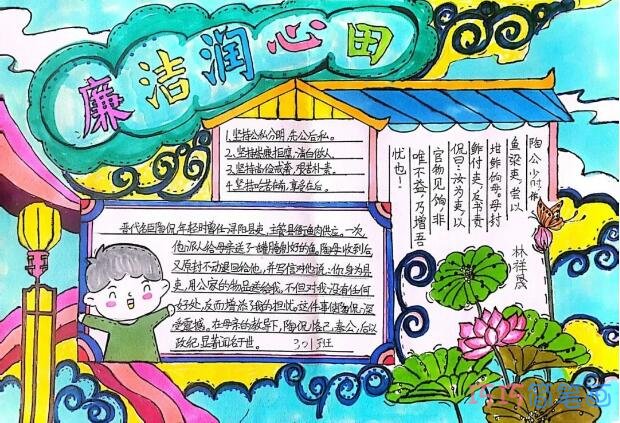 廉洁润心田
1、坚持公私分明，先公后私。
2、坚持崇廉拒腐，清白做人。
3、坚持尚俭戒奢，艰苦朴素。
4、坚持吃苦在前，享受在后。
陶公少时作
鱼梁吏，尝以
坩鲊饷母。母封
鲊付吏，反书责
侃曰：汝为吏，以
官物见饷，非
唯不益，乃增吾
忧也！
林祥晟
晋代名臣陶侃，年轻时曾任浔阳县吏，主管县衙鱼肉供应。一次，
他派人给母亲送了一罐腌制好的鱼。陶母收到后
又原封不动退回给他，并写信对他说：你身为县
吏，用公家的物品送给我，不但对我没有任何
好处，反而增添了我的担忧。这件事使陶侃深
受震撼。在母亲的教导下，陶侃恪己奉公，后以
政纪显著闻名于世。
301班